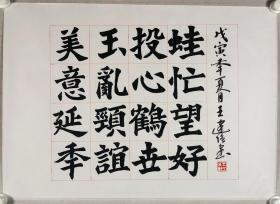 戊寅季夏月王建
蛙忙望好
投心鶴世
玉亂頸誼
美意延季